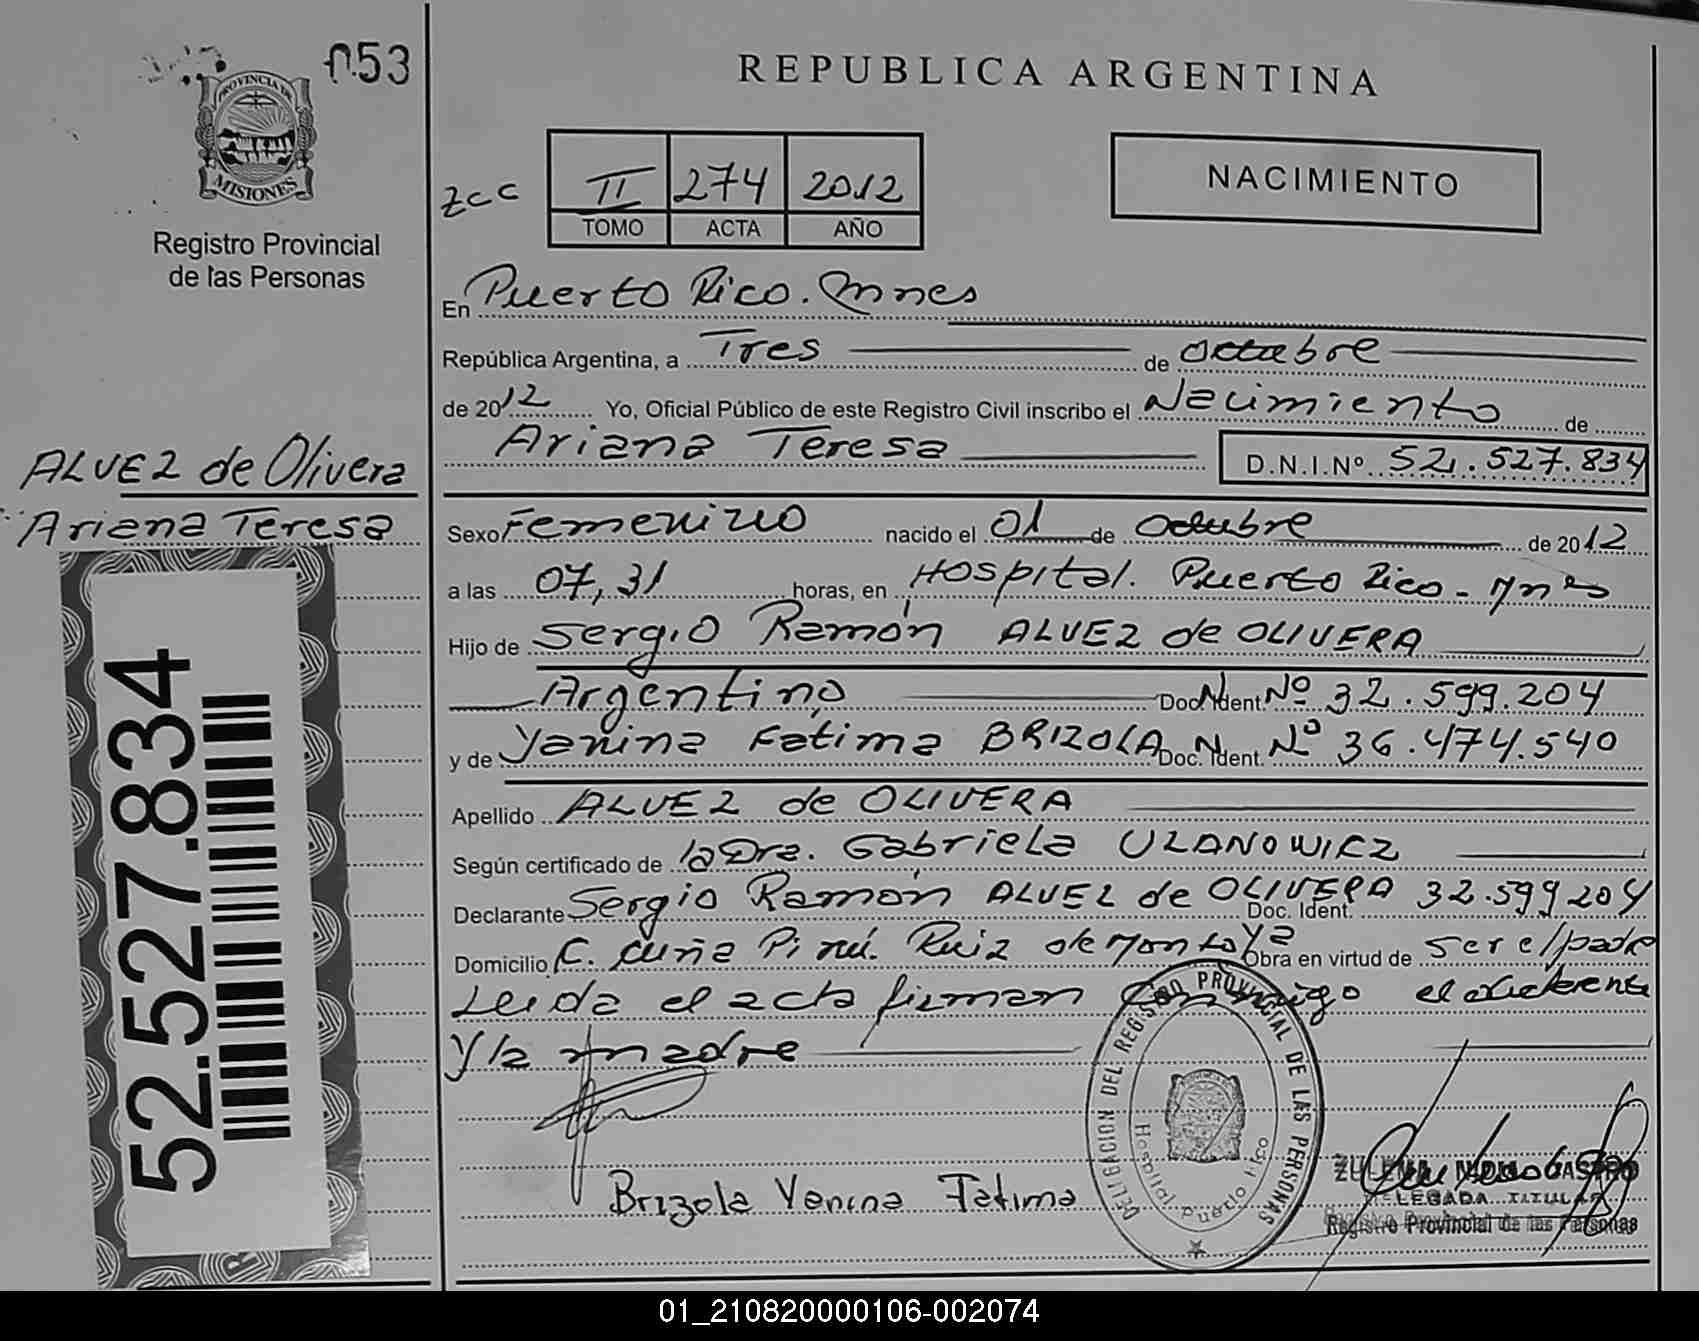 053
PROVINCIA DE
MISIONES
Registro Provincial
de las Personas
REPUBLICA ARGENTINA
zcc
II 274 2012
TOMO ACTA AÑO
NACIMIENTO
En Puerto Rico. Mnes
República Argentina, a Tres de octubre
de 2012 Yo, Oficial Público de este Registro Civil inscribo el Nacimiento de
Ariana Teresa D.N.I.Nº 52.527.834
ALVEZ de Olivera
Ariana Teresa
Sexo Femenino nacido el 01 de octubre de 2012
a las 07,31 horas, en Hospital. Puerto Rico - Mnes
Hijo de Sergio Ramón ALVEZ de OLIVERA
Argentino Doc. Ident. Nº 32.599.204
y de Yanina Fatima BRIZOLA Doc. Ident. Nº 36.474.540
Apellido ALVEZ de OLIVERA
Según certificado de la Dra. Gabriela UZANOWICZ
Declarante Sergio Ramón ALVEZ de OLIVERA Doc. Ident. 32.599.204
Domicilio C. Cuña Pirú. Ruiz de Montoya Obra en virtud de ser el padre
Leida el acta firman conmigo el
y la madre
Brizola Yanina Fatima
DELEGACION DEL REGISTRO PROVINCIAL DE LAS PERSONAS
Hospital Puerto Rico
ZULEMA CASTRO
DELEGADA TITULAR
Registro Provincial de las Personas
52.527.834
01_210820000106-002074